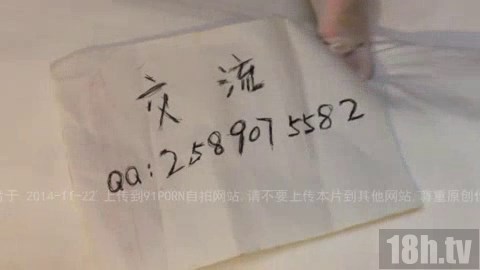 交 流
QQ:2589075582
于 2014-11-22 上传到91PORN自拍网站.请不要上传本片到其他网站.尊重原创作
18h.tv